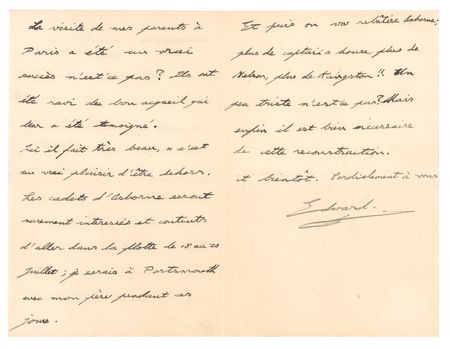 La visite de mes parents à
Paris a été un vrai
succès n'est ce pas? Ils ont
été ravi du bon accueil qui
leur a été témoigné.
Ici il fait très beau, et c'est
un vrai plaisir d'être dehors.
Les cadets d'Osborne seront
surement interessés et contents
d'aller dans la flotte de 18 au 22
juillet; je serais à Portsmouth
avec mon père pendant ces
jours.
Et puis on va Osborne;
plus de captain's house, plus de
Nelson, plus de Kingston!! Un
peu triste n'est ce pas? Mais
enfin il est bien nécessaire
de cette reconstruction.
et bientôt. Cordialement à vous
Edward.